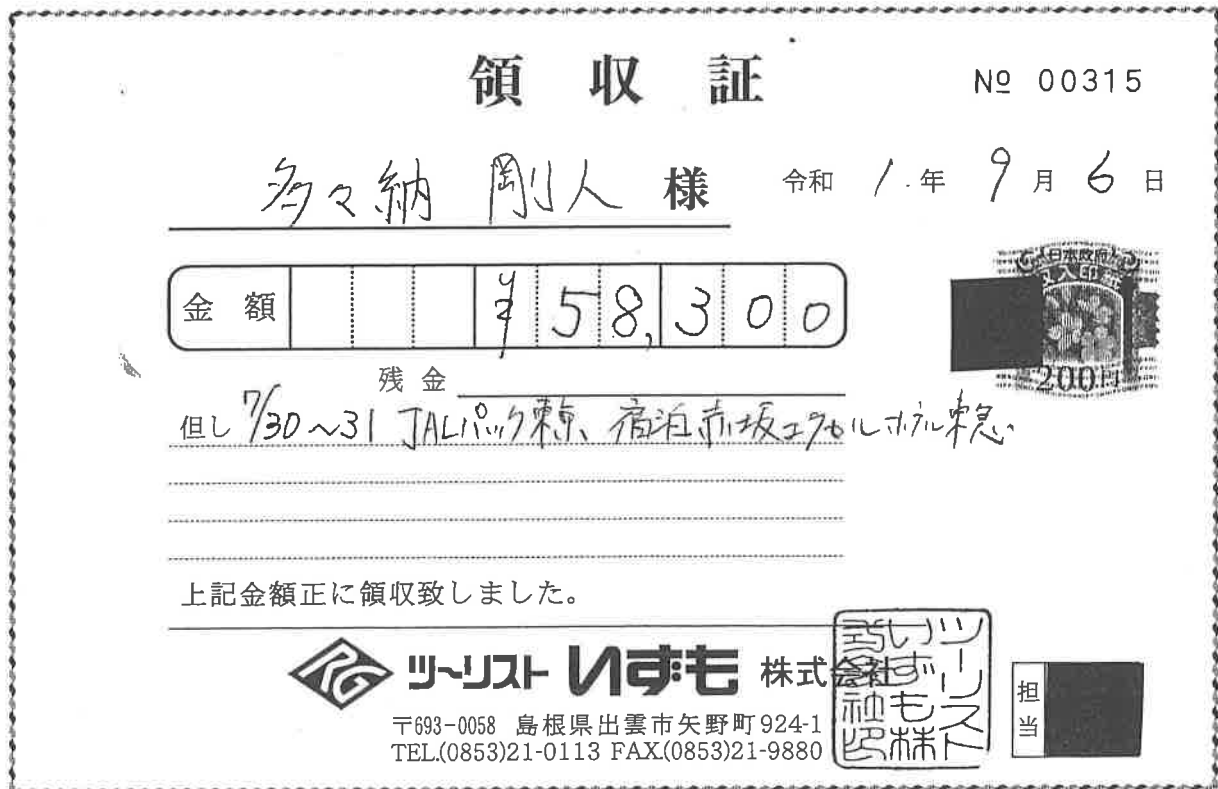 領収証
№ 00315
多々納 剛人 様
令和 1.年 9月 6日
金額 ¥58,300
日本政府
収入印紙
200円
残金
但し 7/30~31 JALパック東京、宿泊赤坂エクセルホテル東急
上記金額正に領収致しました。
RG ツーリスト いずも 株式会社
〒693-0058 島根県出雲市矢野町924-1
TEL.(0853)21-0113 FAX.(0853)21-9880
ツーリスト
いずも株
式会社印
担当